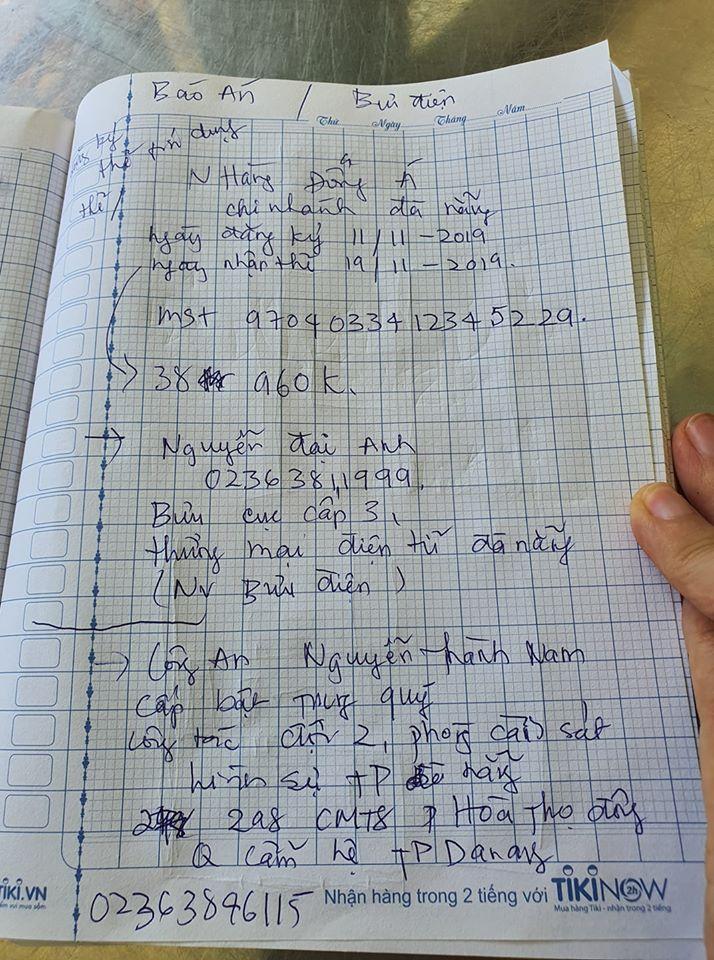 Báo Án / Bưu điện
Thứ Ngày Tháng Năm
ký thẻ tín dụng
N Hàng Đông Á
thì/ chi nhánh đà nẵng
ngày đăng ký 11/11-2019
ngày nhận thẻ 19/11-2019.
mst 9704033412345229.
38 960K.
→ Nguyễn đại Anh
02363811999.
Bưu cục cấp 3,
thương mại điện tử đà nẵng
(NV Bưu điện)
→ Công An Nguyễn thành Nam
cấp bật trung quý
công tác đội 2, phòng cảnh sát
hình sự TP nẵng
298 CMT8 P Hoà Thọ đông
Q cẩm lệ TP Danang
TIKI.VN
Nhận hàng trong 2 tiếng với TIKINOW 2h
Mua hàng Tiki - nhận trong 2 tiếng
02363896115